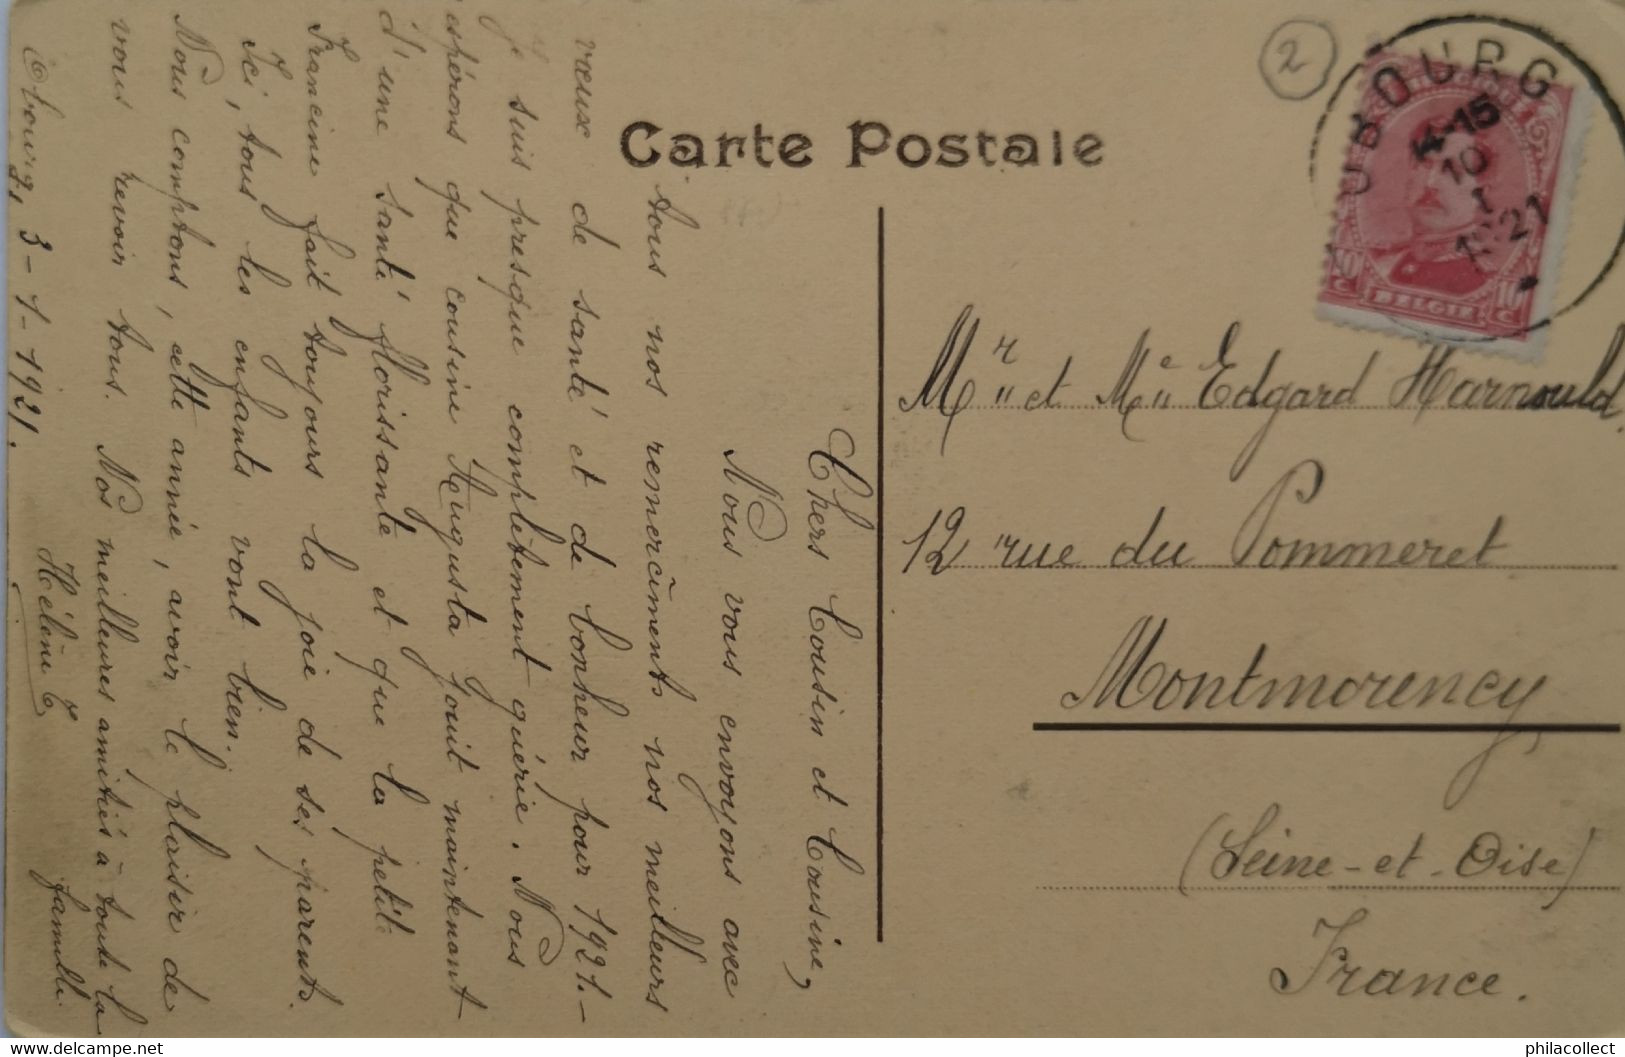 2
Carte Postale
OUBOURG
14-15
10
I
1921
BELGIQUE
10 C
BELGIË
10 C
Mr et Me Edgard Harnould,
12 rue du Pommeret
Montmorency,
(Seine-et-Oise)
France.
Chers Cousin et Cousine,
Nous vous envoyons avec
tous nos remercîments nos meilleurs
vœux de santé et de bonheur pour 1921.-
Je suis presque complètement guérie. Nous
espérons que cousine Augusta jouit maintenant
d'une santé florissante et que la petite
Francine fait toujours la joie de ses parents.
Ici, tous les enfants vont bien.
Nous comptons, cette année, avoir le plaisir de
vous revoir tous. Nos meilleures amitiés à toute la
famille.
3-1-1921.
Hélène
philacollect www.philacollect.be